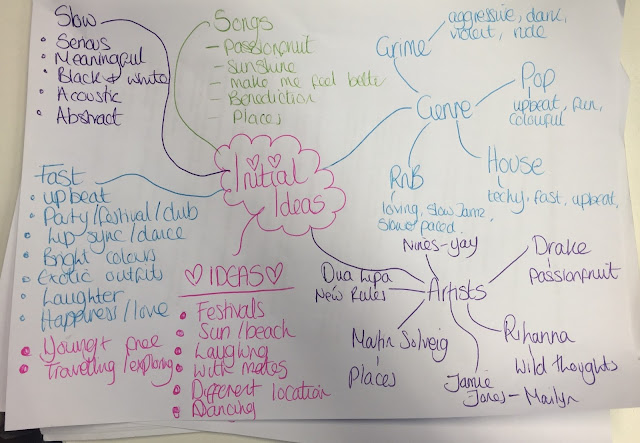 Slow
• Serious
• Meaningful
• Black & white
• Acoustic
• Abstract
Songs
- Passionfruit
- Sunshine
- make me feel better
- Benediction
- Places
Genre
Grime
aggressive, dark,
violent, rude
Pop
upbeat, fun,
colourful
House
techy, fast, upbeat,
RnB
loving, slow Jamz,
slower paced.
Initial
Ideas
Fast
• upbeat
• Party/festival/club
• Lip sync/dance
• Bright colours
• Exotic outfits
• Laughter
• Happiness/love
• Young + free
• Travelling/exploring
♡IDEAS♡
• Festivals
• Sun/beach
• Laughing
• With mates
• Different location
• Dancing
Artists
Nines-yay
Drake
Passionfruit
Dua Lipa
New Rules
Martin Solveig
Places
Jamie
Jones - Marilyn
Rihanna
Wild thoughts